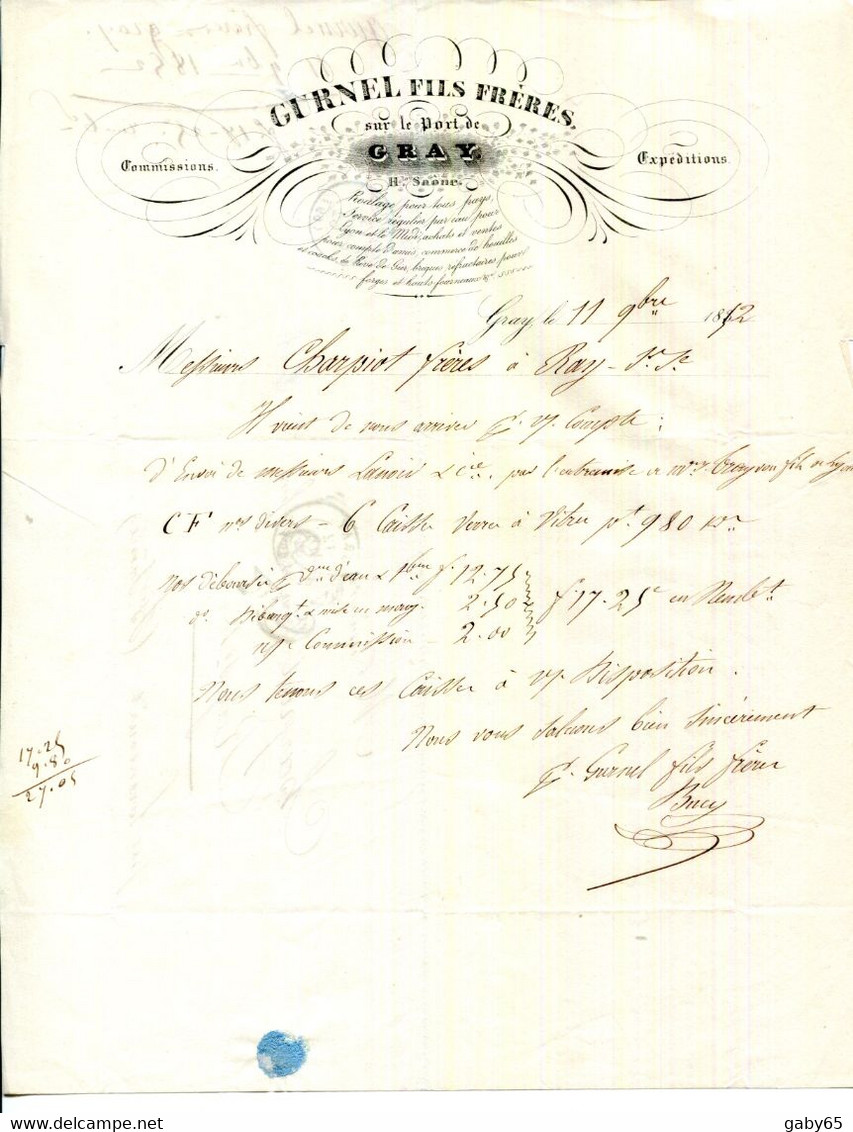 GURNEL FILS FRÈRES.
sur le Port de
GRAY,
H.te Saône.
Commissions.
Expéditions.
Roulage pour tous pays,
Service régulier par eau pour
Lyon et le Midi, achats et ventes
pour compte d'amis, commerce de houilles
et coacks, de Rive de Gier, briques réfractaires pour
forges et hauts fourneaux &a
Gray, le 11 9bre 1852
Messieurs Charpiot frères à Ray-s.r-S.e
Il vient de nous arriver p. v/ Compte :
d'Envoi de messieurs Lanoir & Cie. par l'entremise de mrs fils de Lyon
CF nos divers - 6 Caisses Verre à Vitre pt 980 Ko
Nos déboursés d'eau & f. 12.75
do. Débarqt. & mise en mag. 2.50 f 17.25c en Rembt.
n/ Commission - 2.00
Nous tenons ces Caisses à v/ Disposition.
Nous vous saluons bien sincèrement
p. Gurnel fils frères
Bucy
17.25
9.80
27.05
gaby65